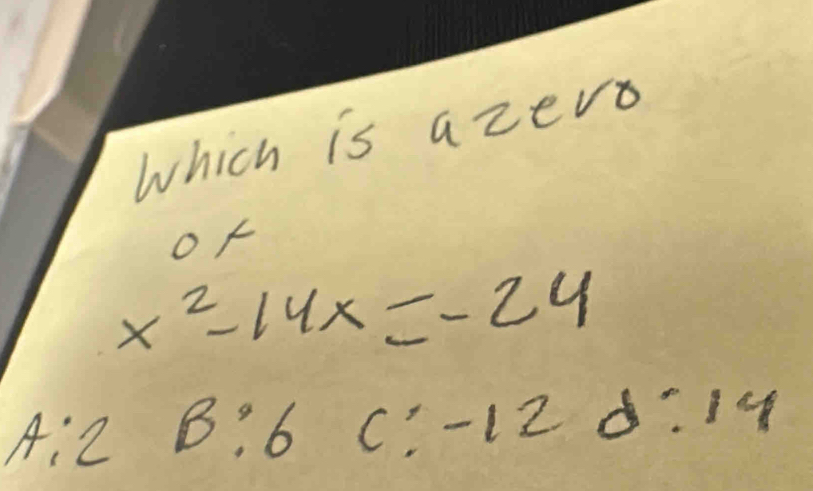 Which is a zero
of
x²-14x=-24
A:2 B:6 C:-12 d:14